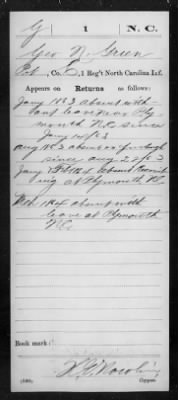 G | 1 | N.C.
Geo N. Green
Pvt, Co. E, 1 Reg't North Carolina Inf.
Appears on Returns as follows:
Jany 1863 absent with-
out leave near Ply-
mouth N.C. since
Jany 14/63
Aug 1863 absent on furlough
since Aug 22/63
Jany & Feb 1864 absent Recruit
ing at Plymouth N.C.
Mch 1864 absent with
leave at Plymouth
N.C.
Book mark:
(546)
Copyist.